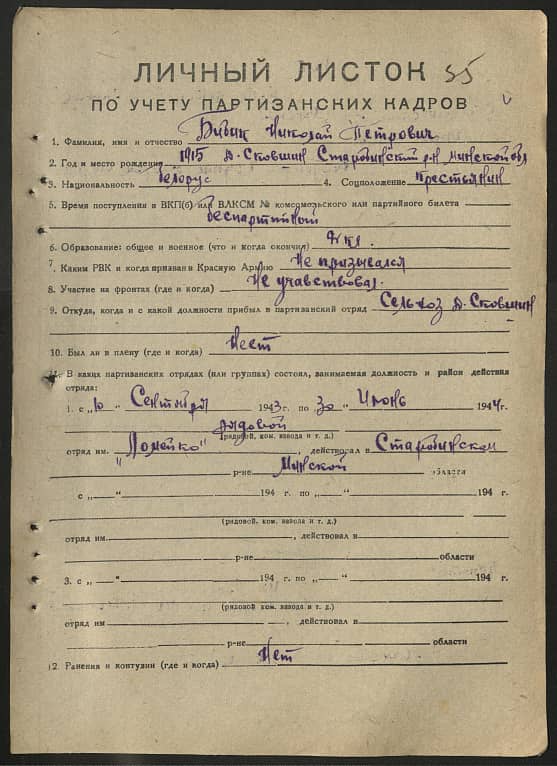 ЛИЧНЫЙ ЛИСТОК 55
ПО УЧЕТУ ПАРТИЗАНСКИХ КАДРОВ
1. Фамилия, имя и отчество Бибик Николай Петрович
2. Год и место рождения 1915 д. Сковшин Старобинский р-н Минской обл
3. Национальность белорус 4. Соцположение крестьянин
5. Время поступления в ВКП(б) или ВЛКСМ № комсомольского или партийного билета
беспартийный
6. Образование: общее и военное (что и когда окончил) 4 кл.
7. Каким РВК и когда призван в Красную Армию Не призывался
8. Участие на фронтах (где и когда) Не учавствовал
9. Откуда, когда и с какой должности прибыл в партизанский отряд Сельхоз д. Сковшин
10. Был ли в плену (где и когда) Нест
11. В каких партизанских отрядах (или группах) состоял, занимаемая должность и район действия
отряда:
1. с „10 “ Сентября 1943г. по 30 “ Июнь 1944г.
рядовой
(рядовой, ком. взвода и т. д.)
отряд им. , действовал в Старобинском
р-не Минской области
с „ “ 194 г. по „ “ 194 г.
(рядовой, ком. взвода и т. д.)
отряд им. , действовал в
р-не области
3. с „ “ 194 г. по „ “ 194 г.
(рядовой, ком. взвода и т. д.)
отряд им , действовал в
р-не области
12. Ранения и контузии (где и когда) Нет